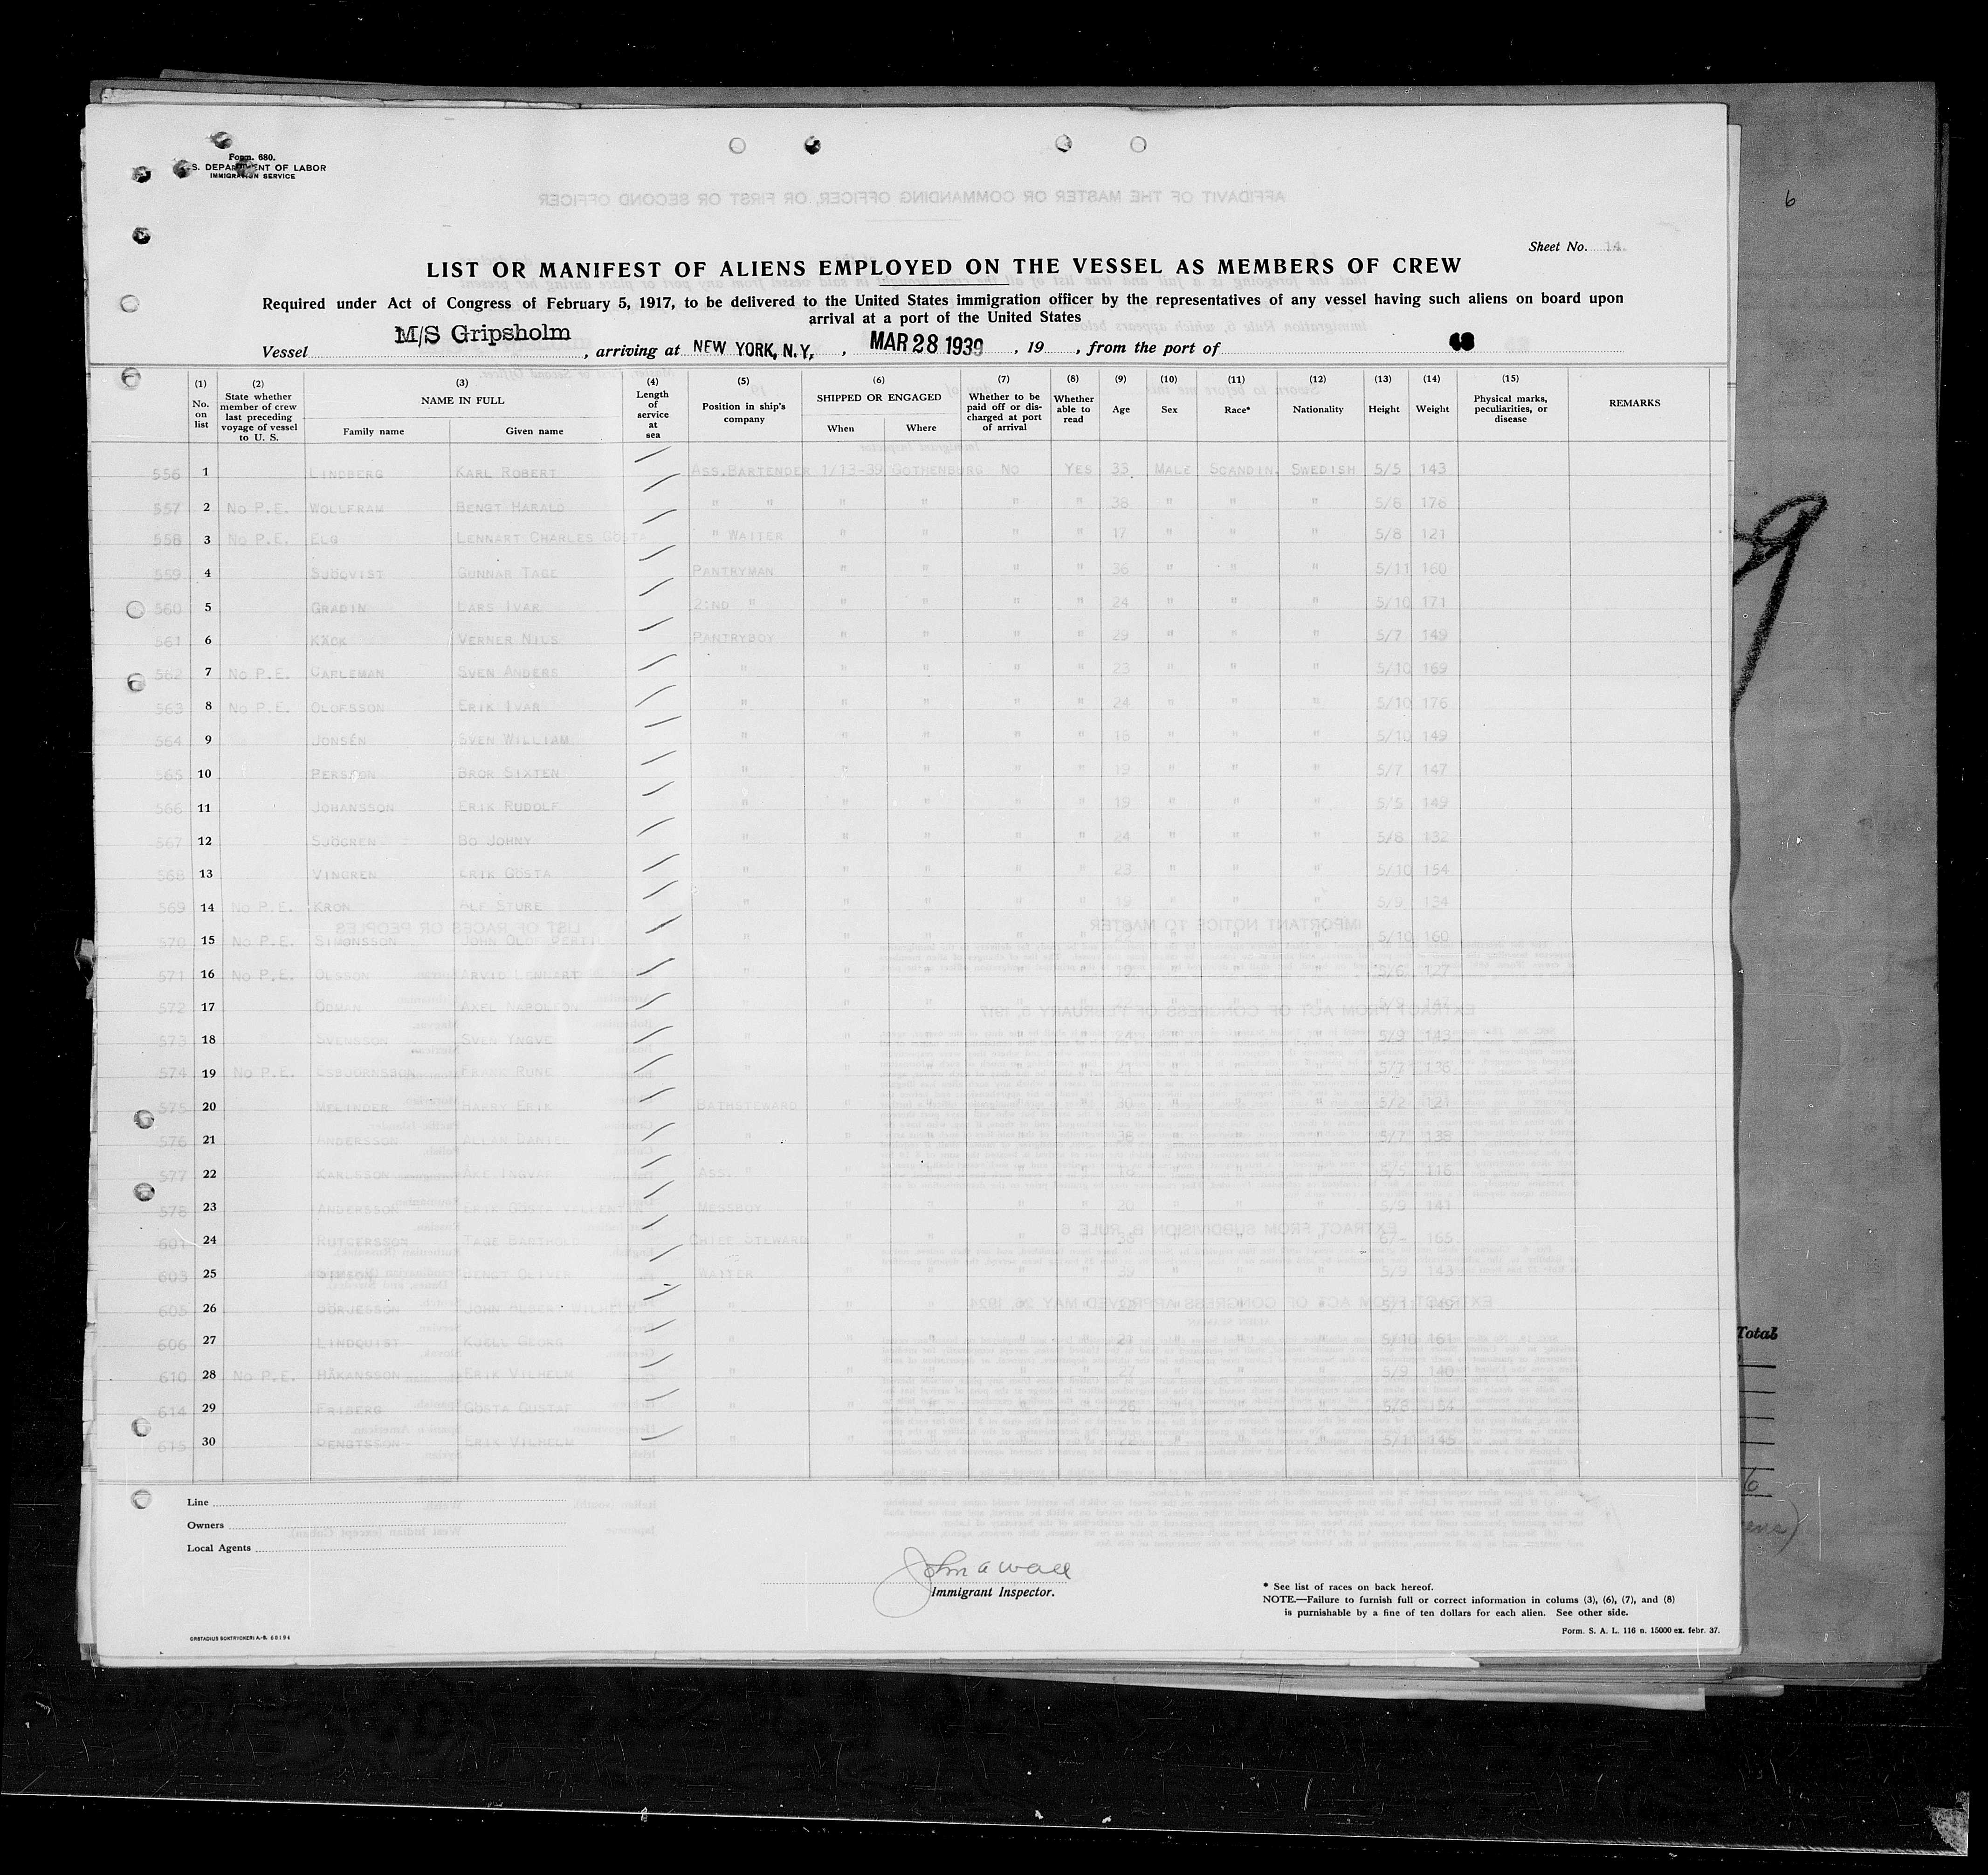 6
Form. 680.
S. DEPARTMENT OF LABOR
IMMIGRATION SERVICE
Sheet No. 14.
LIST OR MANIFEST OF ALIENS EMPLOYED ON THE VESSEL AS MEMBERS OF CREW
Required under Act of Congress of February 5, 1917, to be delivered to the United States immigration officer by the representatives of any vessel having such aliens on board upon
arrival at a port of the United States
Vessel M/S Gripsholm , arriving at NEW YORK, N.Y., , MAR 28 1939 , 19 , from the port of 48
(1) No. on list (2) State whether member of crew last preceding voyage of vessel to U. S. (3) NAME IN FULL Family name Given name (4) Length of service at sea (5) Position in ship's company (6) SHIPPED OR ENGAGED When Where (7) Whether to be paid off or discharged at port of arrival (8) Whether able to read (9) Age (10) Sex (11) Race* (12) Nationality (13) Height (14) Weight (15) Physical marks, peculiarities, or disease REMARKS
556 1 LINDBERG KARL ROBERT ASS.BARTENDER 1/13-39 GOTHENBURG NO YES 33 MALE SCANDIN. SWEDISH 5/5 143
557 2 NO P.E. WOLLFRAM BENGT HARALD " " " " " " 38 " " " 5/6 176
558 3 NO P.E. ELG LENNART CHARLES GÖSTA " WAITER " " " " 17 " " " 5/8 121
559 4 SJÖQVIST GUNNAR TAGE PANTRYMAN " " " " 36 " " " 5/11 160
560 5 GRADIN LARS IVAR 2:ND " " " " " 24 " " " 5/10 171
561 6 KÄCK VERNER NILS PANTRYBOY " " " " 29 " " " 5/7 149
562 7 NO P.E. CARLEMAN SVEN ANDERS " " " " " 23 " " " 5/10 169
563 8 NO P.E. OLOFSSON ERIK IVAR " " " " " 24 " " " 5/10 176
564 9 JONSÉN SVEN WILLIAM " " " " " 18 " " " 5/10 149
565 10 PERSSON BROR SIXTEN " " " " " 19 " " " 5/7 147
566 11 JOHANSSON ERIK RUDOLF " " " " " 19 " " " 5/5 149
567 12 SJÖGREN BO JOHNY " " " " " 24 " " " 5/8 132
568 13 VINGREN ERIK GÖSTA " " " " " 23 " " " 5/10 154
569 14 NO P.E. KRON ALF STURE " " " " " 19 " " " 5/9 134
570 15 NO P.E. SIMONSSON JOHN OLOF BERTIL " " " " " " " " 5/10 160
571 16 NO P.E. OLSSON ARVID LENNART " " " " " 19 " " " 5/6 127
572 17 ÖDMAN AXEL NAPOLEON " " " " " " " " 147
573 18 SVENSSON SVEN YNGVE " " " " " 24 " " " 5/9 143
574 19 NO P.E. ESBJÖRNSSON FRANK RUNE " " " " " 21 " " " 5/7 136
575 20 MELINDER HARRY ERIK BATHSTEWARD " " " " 30 " " " 5/2 121
576 21 ANDERSSON ALLAN DANIEL " " " " " 38 " " " 5/7 138
577 22 KARLSSON ÅKE INGVAR ASS. " " " " " 18 " " " 5/5 116
578 23 ANDERSSON ERIK GÖSTA VALLENTIN MESSBOY " " " " 20 " " " 5/9 141
601 24 RUTGERSSON TAGE BARTHOLD CHIEF STEWARD " " " " " " " 6/- 165
603 25 BENGT OLIVER WAITER " " " " 39 " " " 5/9 143
605 26 BÖRJESSON JOHN ALBERT WILHELM " " " " " 22 " " " 5/11 149
606 27 LINDQUIST KJELL GEORG " " " " " 21 " " " 5/10 161
610 28 NO P.E. HÅKANSSON ERIK VILHELM " " " " " 27 " " " 5/9 140
614 29 FRIBERG GÖSTA GUSTAF " " " " " 26 " " " 5/8 154
615 30 BENGTSSON ERIK VILHELM " " " " " 22 " " " 5/11 145
Total
Line
Owners
Local Agents
John A Wall
Immigrant Inspector.
* See list of races on back hereof.
NOTE.—Failure to furnish full or correct information in colums (3), (6), (7), and (8)
is punishable by a fine of ten dollars for each alien. See other side.
ORSTADIUS BOKTRYCKERI A.-B. 68194
Form. S. A. L. 116 n. 15000 ex. febr. 37.